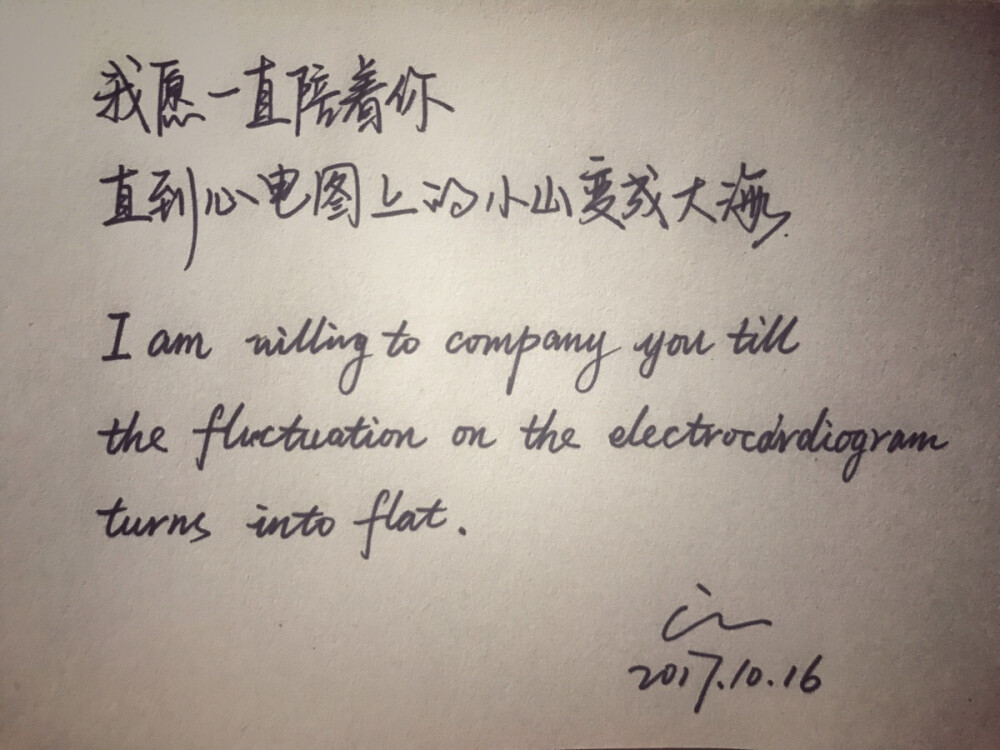 我愿一直陪着你
直到心电图上的小山变成大海
I am willing to company you till
the fluctuation on the electrocardiogram
turns into flat.
2017.10.16